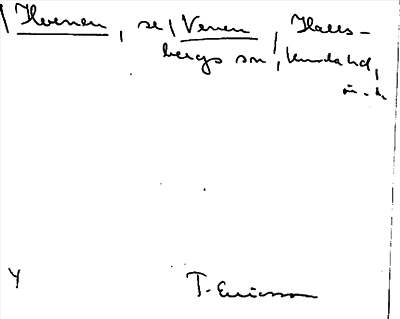 Hvenen, se Venen, Halls-
bergs sn, Kumla hd,
T. Ericsson